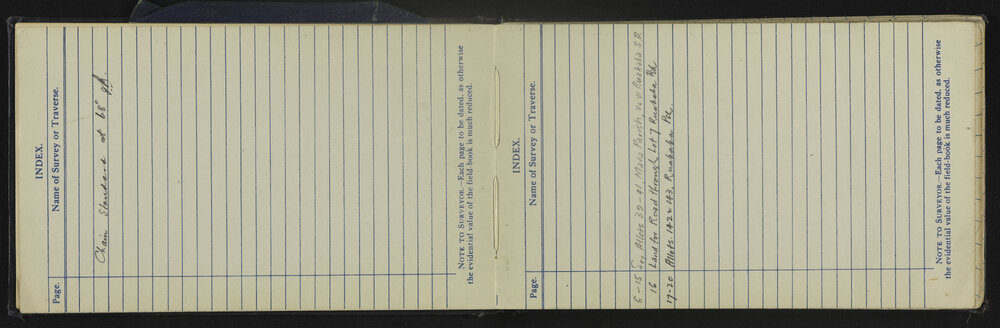 INDEX.
Page. Name of Survey or Traverse.
Chain Standard at 68°
NOTE TO SURVEYOR.—Each page to be dated, as otherwise
the evidential value of the field-book is much reduced.
INDEX.
Page. Name of Survey or Traverse.
6-15 Allots 39-41 Mata Parish, Ruakaka S.D.
16 Land for Road through Lot 7 Ruakaka Pd.
17-20 Allots 142 & 143, Ruakaka Pd.
NOTE TO SURVEYOR.—Each page to be dated, as otherwise
the evidential value of the field-book is much reduced.